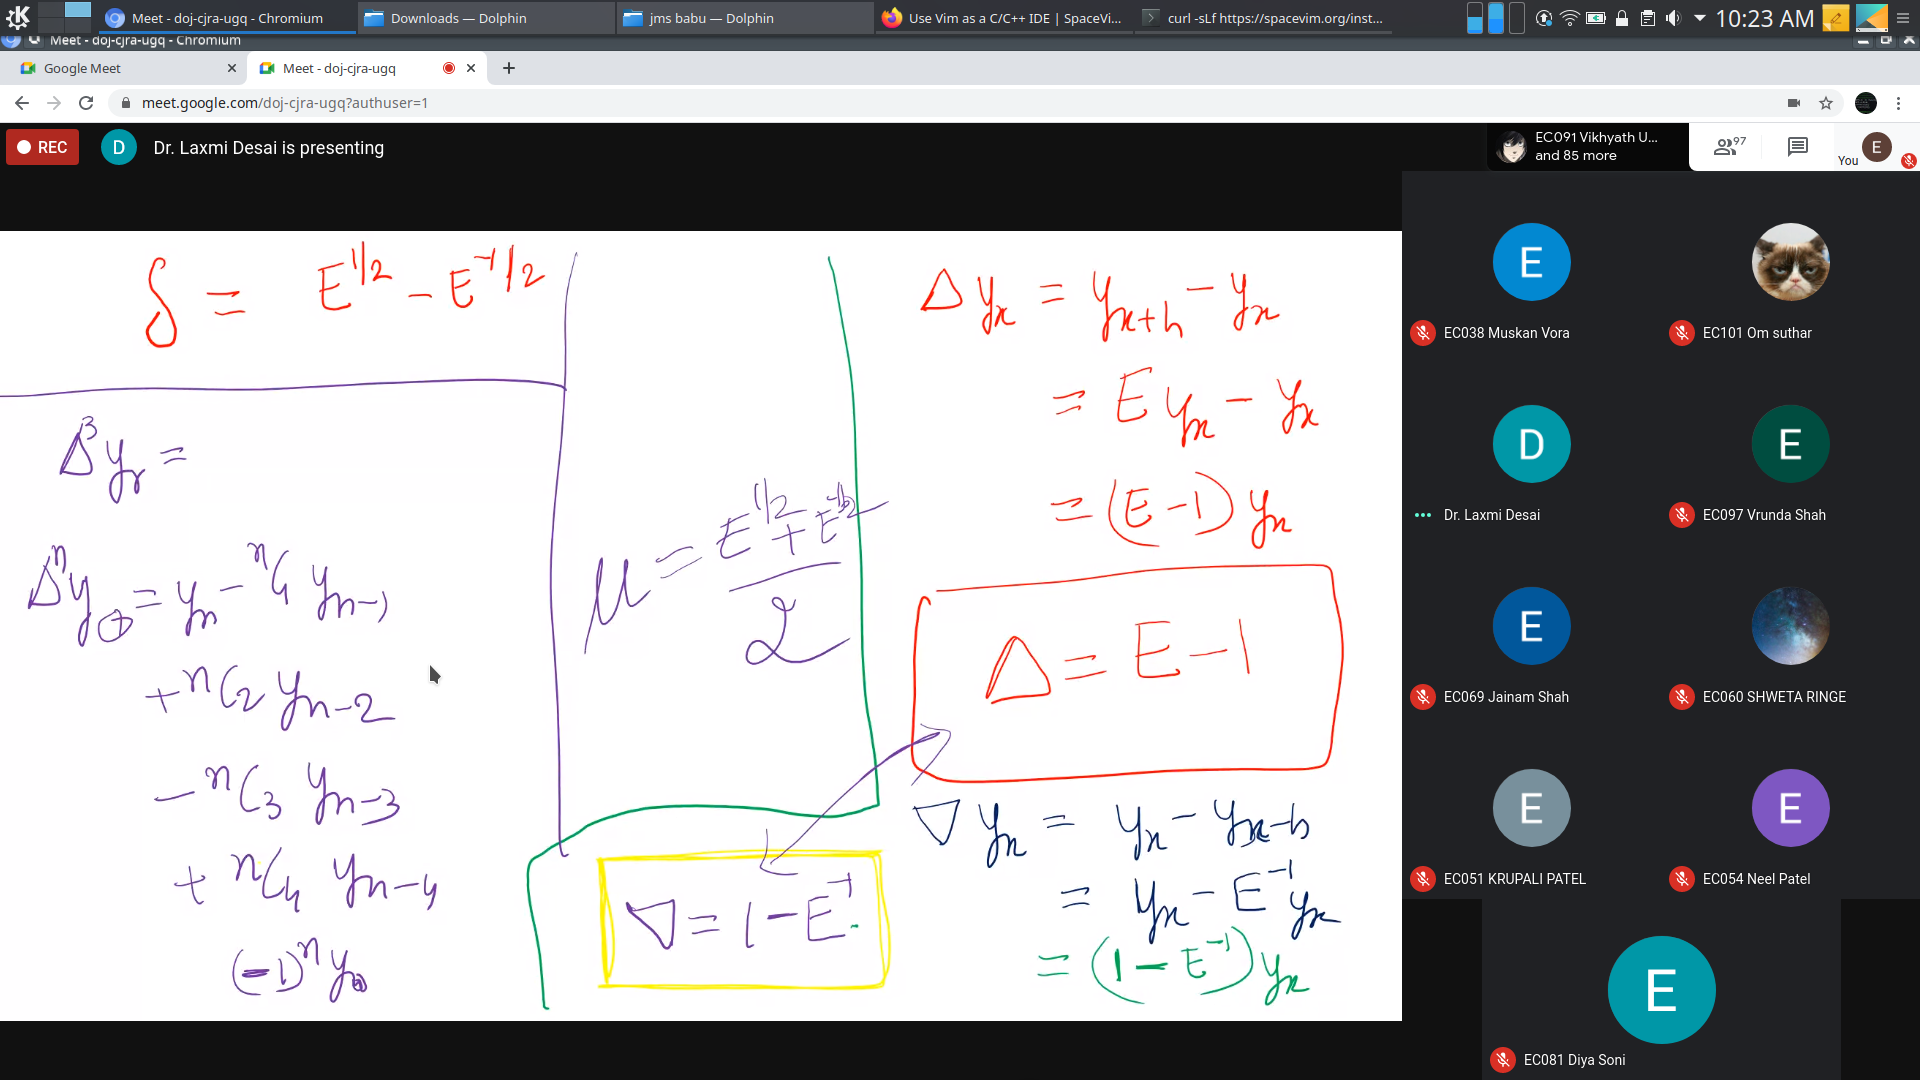 Meet - doj-cjra-ugq - Chromium
Downloads — Dolphin
jms babu — Dolphin
Use Vim as a C/C++ IDE | SpaceVi...
curl -sLf https://spacevim.org/inst...
10:23 AM
Meet - doj-cjra-ugq - Chromium
Google Meet
Meet - doj-cjra-ugq
meet.google.com/doj-cjra-ugq?authuser=1
REC
D
Dr. Laxmi Desai is presenting
EC091 Vikhyath U...
and 85 more
97
You
E
δ = E^1/2 - E^-1/2
Δ^3 y_r =
Δ^n y_0 = y_n - nC1 y_n-1
+ nC2 y_n-2
- nC3 y_n-3
+ nC4 y_n-4
(-1)^n y_0
μ = E^1/2 + E^-1/2
2
∇ = 1 - E^-1
Δ y_x = y_x+h - y_x
= E y_x - y_x
= (E - 1) y_x
Δ = E - 1
∇ y_x = y_x - y_x-h
= y_x - E^-1 y_x
= (1 - E^-1) y_x
E
EC038 Muskan Vora
EC101 Om suthar
D
Dr. Laxmi Desai
E
EC097 Vrunda Shah
E
EC069 Jainam Shah
EC060 SHWETA RINGE
E
EC051 KRUPALI PATEL
E
EC054 Neel Patel
E
EC081 Diya Soni